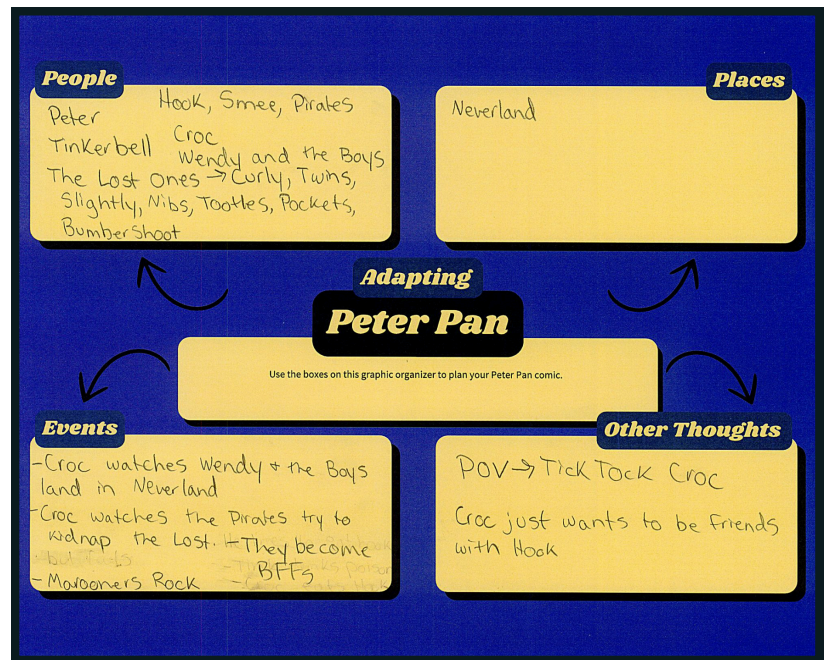 People
Hook, Smee, Pirates
Peter
Croc
Tinkerbell
Wendy and the Boys
The Lost Ones → Curly, Twins,
Slightly, Nibs, Tootles, Pockets,
Bumbershoot
Places
Neverland
Adapting
Peter Pan
Use the boxes on this graphic organizer to plan your Peter Pan comic.
Events
-Croc watches Wendy + the Boys
land in Neverland
-Croc watches the Pirates try to
kidnap the Lost.
-They become
BFFs
-Marooners Rock
Other Thoughts
POV → Tick Tock Croc
Croc just wants to be friends
with Hook